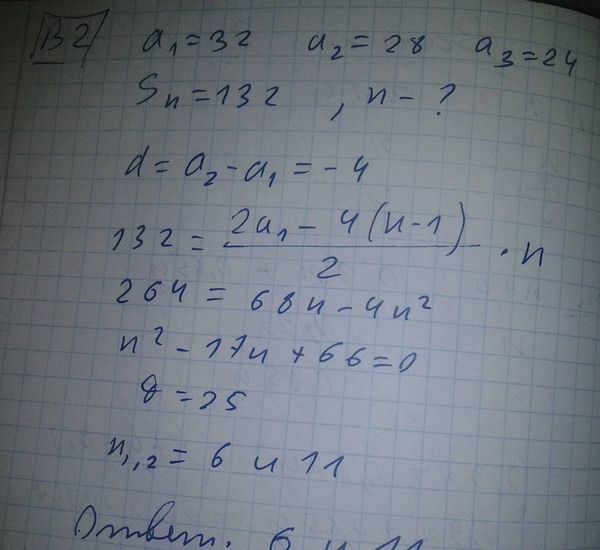 B2 a₁=32 a₂=28 a₃=24
Sₙ=132 , n - ?
d = a₂-a₁ = -4
132 = (2a₁ - 4(n-1))/2 · n
264 = 68n - 4n²
n² - 17n + 66 = 0
D = 25
n₁,₂ = 6 и 11
Ответ. 6 и 11